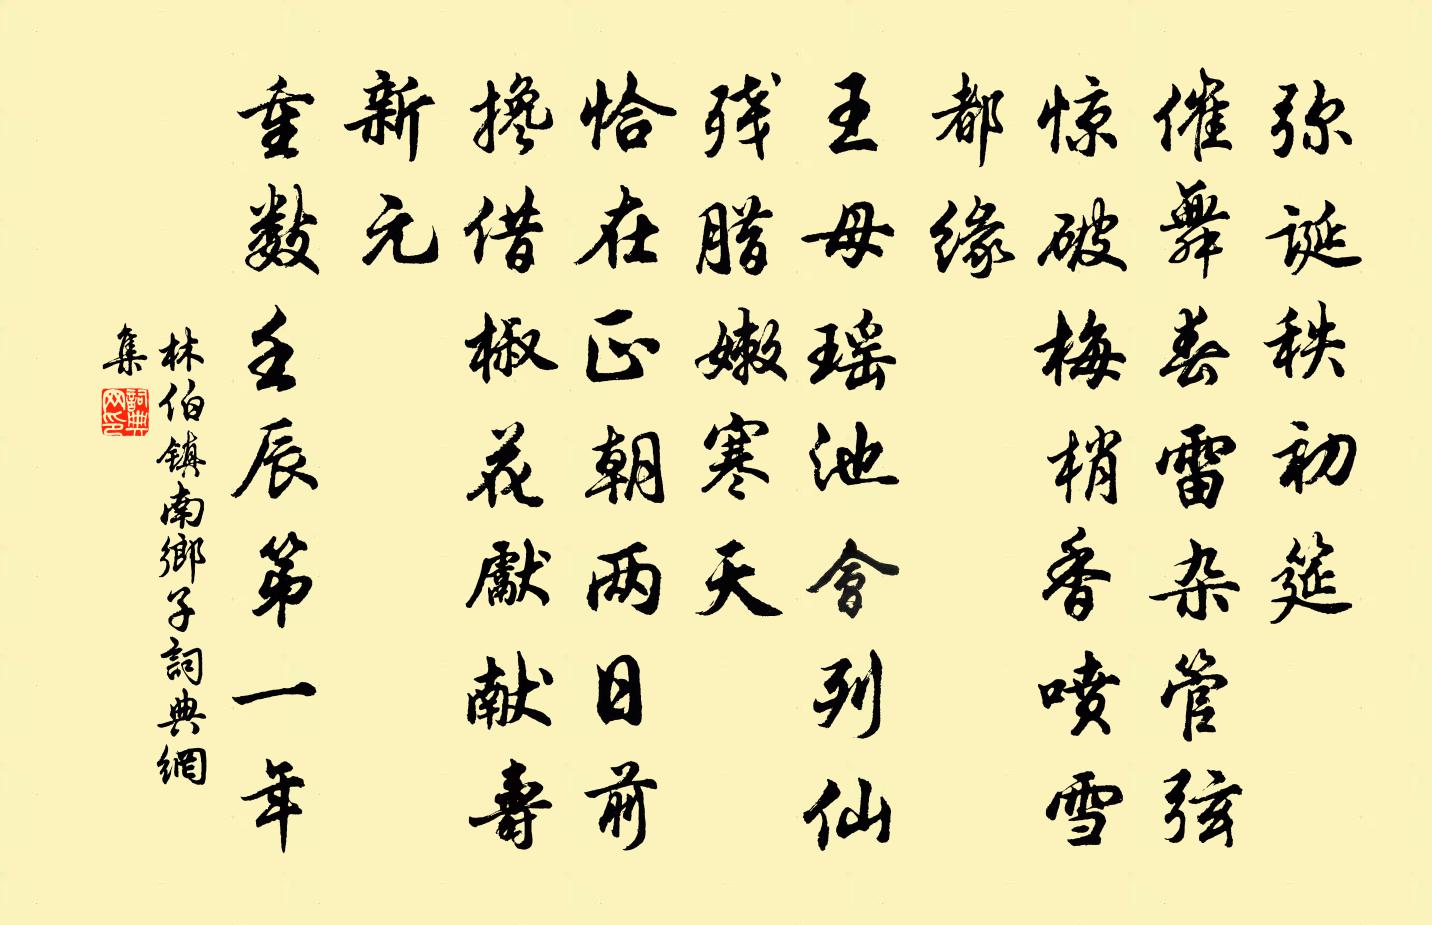 弥诞秩初筵
催舞春雷杂管弦
惊破梅梢香喷雪
都缘
王母瑶池会列仙
残腊嫩寒天
恰在正朝两日前
搀借椒花献献寿
新元
重数壬辰第一年
林伯镇南鄉子詞典網
集
詞典网印